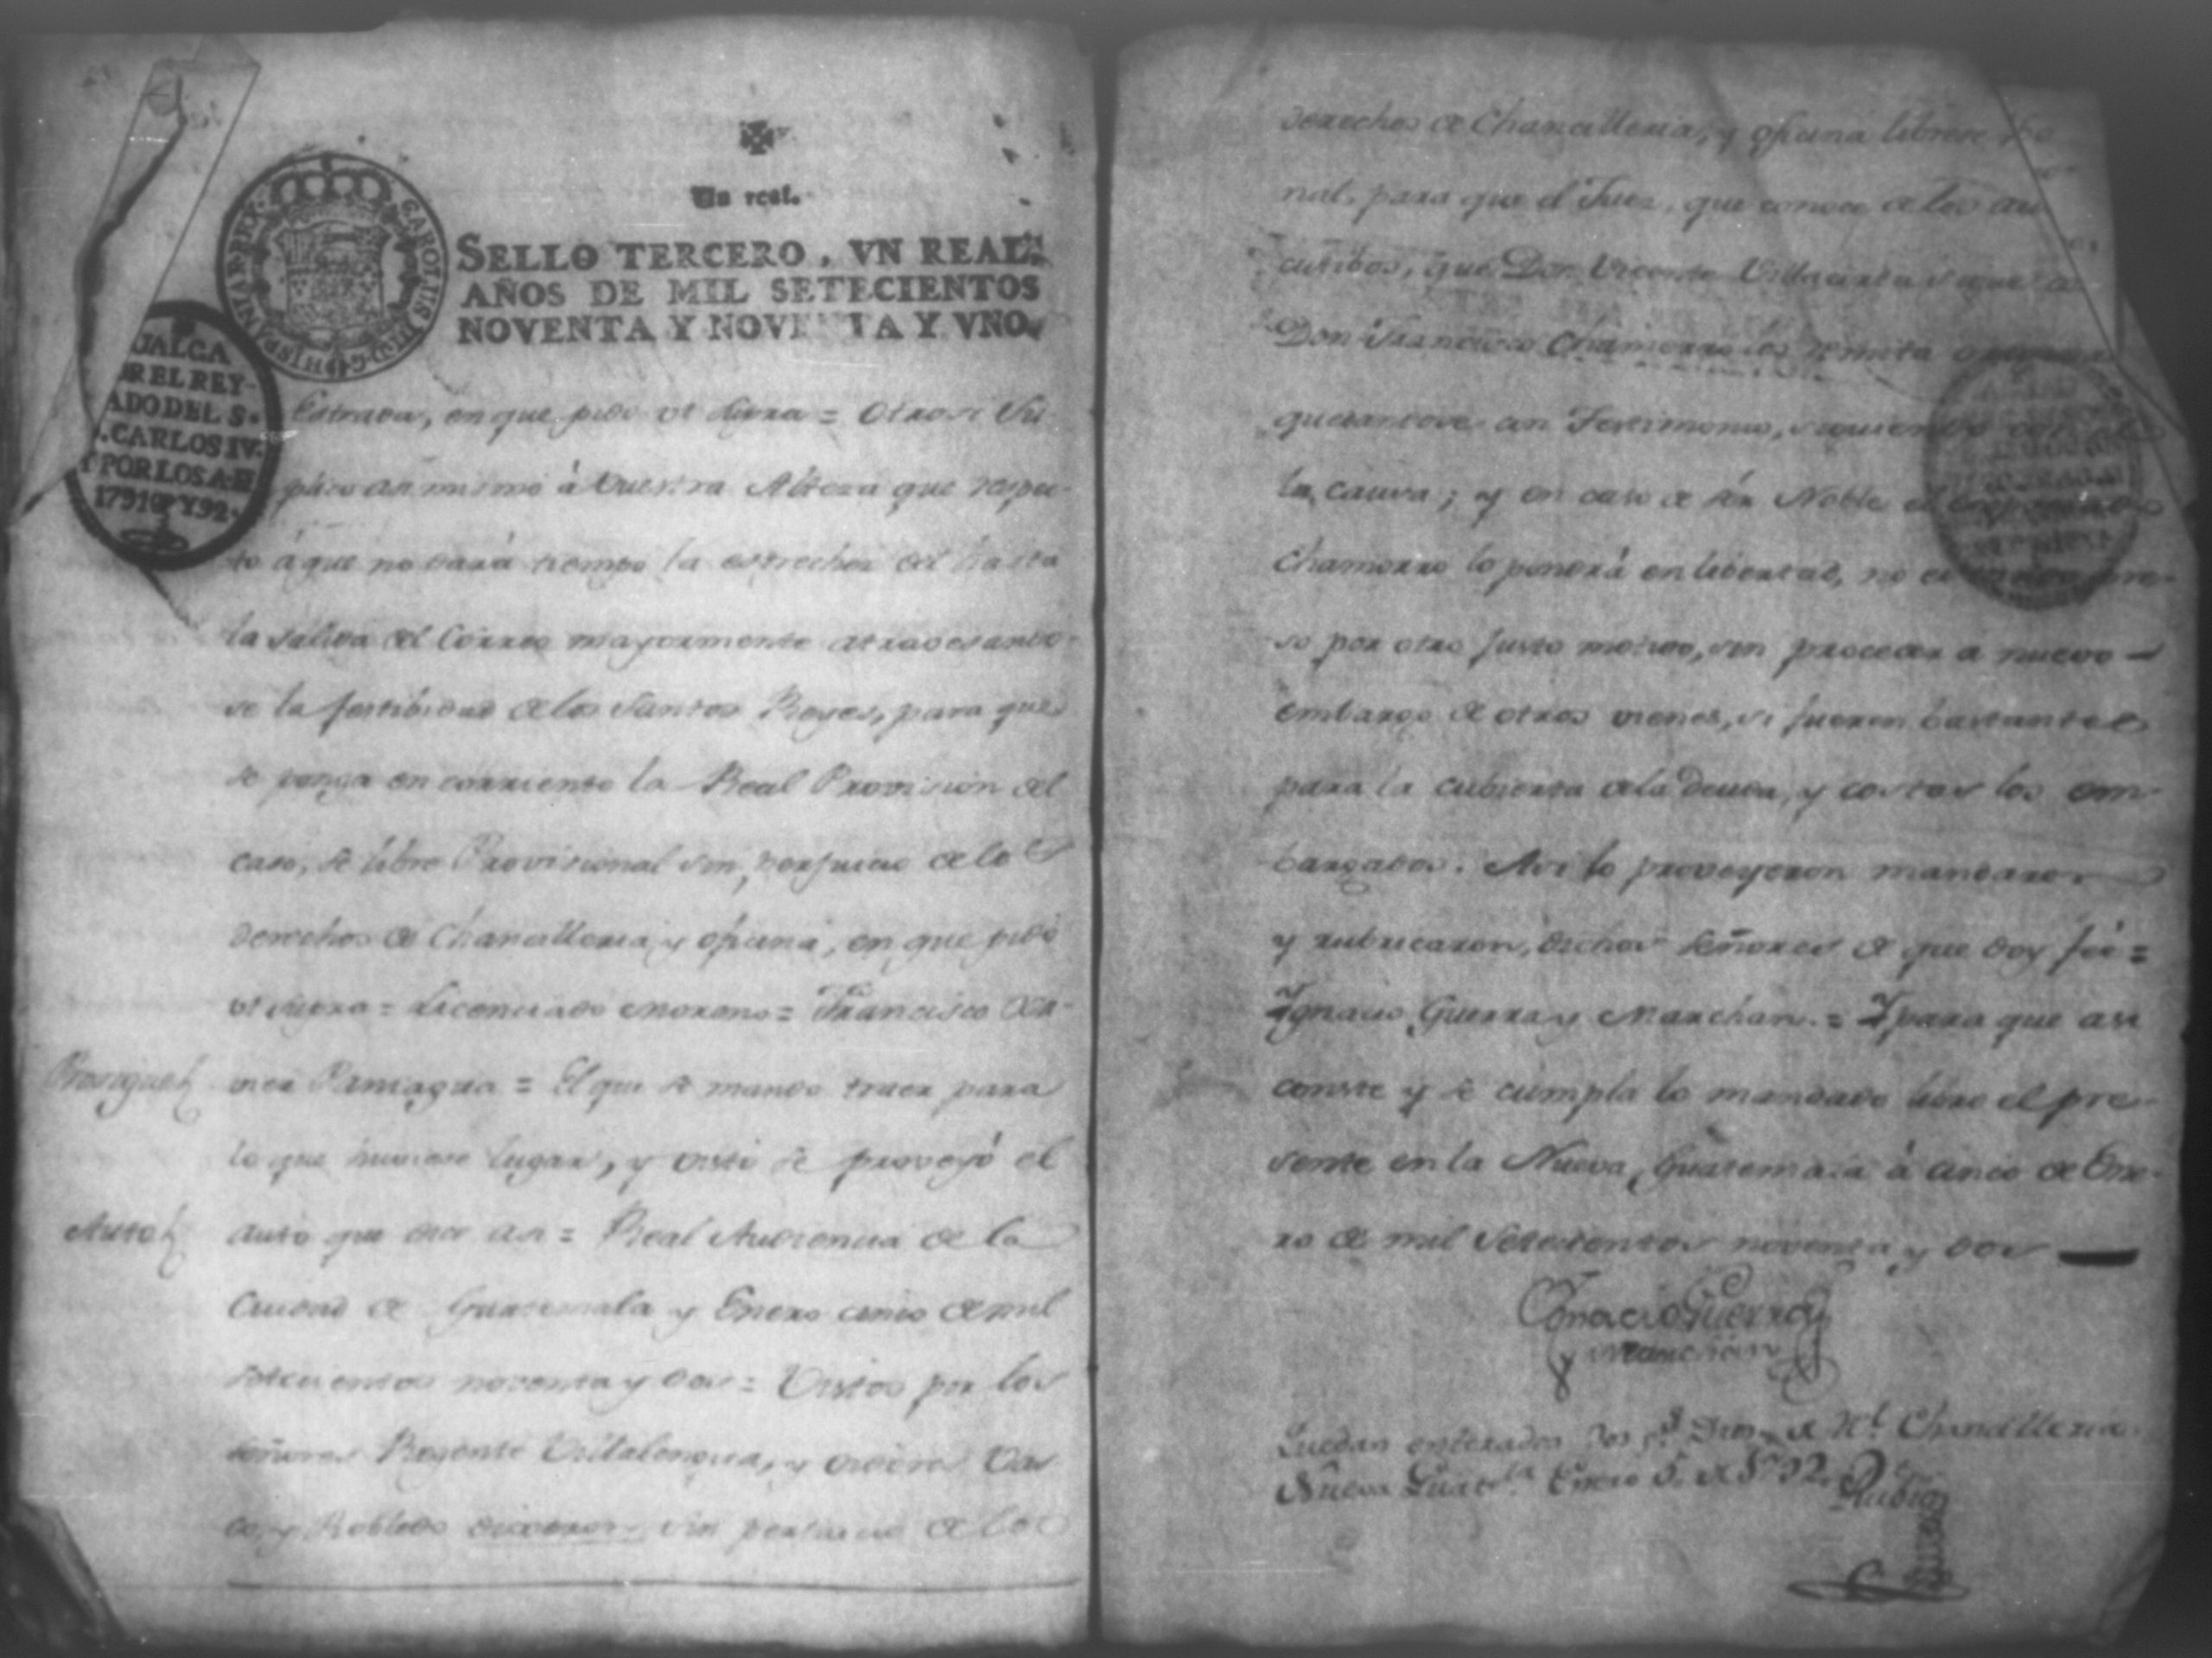 Un real.
SELLO TERCERO, VN REAL,
AÑOS DE MIL SETECIENTOS
NOVENTA Y NOVENTA Y VNO.
CAROLUS IV D G HISPANIAR REX
VALGA
OR EL REY
ADO DEL S.
CARLOS IV.
Y POR LOS A. DE
1791 Y 92.
Estrados, en que pide ut supra = Otrosi Su
plico asi mismo á Vuestra Alteza que respe-
to á que no dará tiempo la estrechez del hasta
la salida del Correo mayormente atrabesando-
se la festibidad de los Santos Reyes, para que
se ponga en corriente la Real Provision del
caso, se libre Provisional sin perjuicio de los
derechos de Chancilleria y oficina, en que pido
ut supra = Licenciado Moreno = Francisco Xa-
Prosigue
vier Paniagua = El que se mando traer para
lo que huviese lugar, y visto se proveyó el
Auto
auto que dice asi = Real Audiencia de la
Ciudad de Guatemala y Enero cinco de mil
setecientos noventa y dos = Vistos por los
señores Regente Villalengua, y oidores Vas
co, y Robledo dixeron: sin perjuicio de los
derechos de Chancilleria, y oficina librese
nal, para que el Juez, que conoce de los au
cutibos, que Don Vicente sigue a
Don Francisco Chamorro los remita
quedandose con Testimonio, siguiendo
la causa; y en caso de sér Noble el
Chamorro lo pondrá en libertad, no pre-
so por otro justo motivo, sin proceder a nuevo
embargo de otros vienes, si fueren bastantes
para la cubierta de la deuda, y costas los em-
bargados. Asi lo proveyeron mandaron
y rubricaron, dichos señores de que doy fée =
Ygnacio Guerra y Marchan. = Y para que asi
conste y se cumpla lo mandado libro el pre-
sente en la Nueva Guatemala á cinco de Ene-
ro de mil setecientos noventa y dos
Ignacio Guerra
y Marchán
Quedan enterados los Dros. de Rl. Chancilleria.
Nueva Guatla. Enero 5. de 92.
Rubio